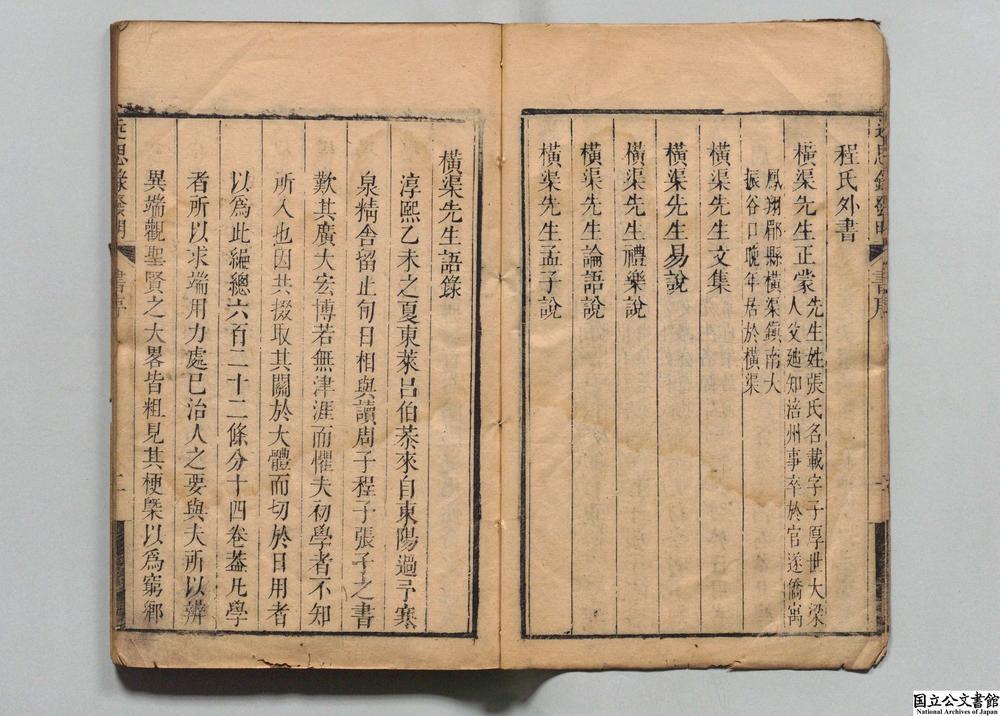 程氏外書
橫渠先生正蒙
先生姓張氏名載字子厚世大梁
人父廸知涪州事卒於官遂僑寓
鳳翔郿縣橫渠鎮南大
振谷口晚年居於橫渠
橫渠先生文集
橫渠先生易說
橫渠先生禮樂說
橫渠先生論語說
橫渠先生孟子說
橫渠先生語錄
淳熙乙未之夏東萊呂伯恭來自東陽過予寒
泉精舍留止旬日相與讀周子程子張子之書
歎其廣大宏博若無津涯而懼夫初學者不知
所入也因共掇取其關於大體而切於日用者
以爲此編總六百二十二條分十四卷蓋凡學
者所以求端用力處己治人之要與夫所以辨
異端觀聖賢之大畧皆粗見其梗槩以爲窮鄉
近思錄發明
書序
二
国立公文書館
National Archives of Japan